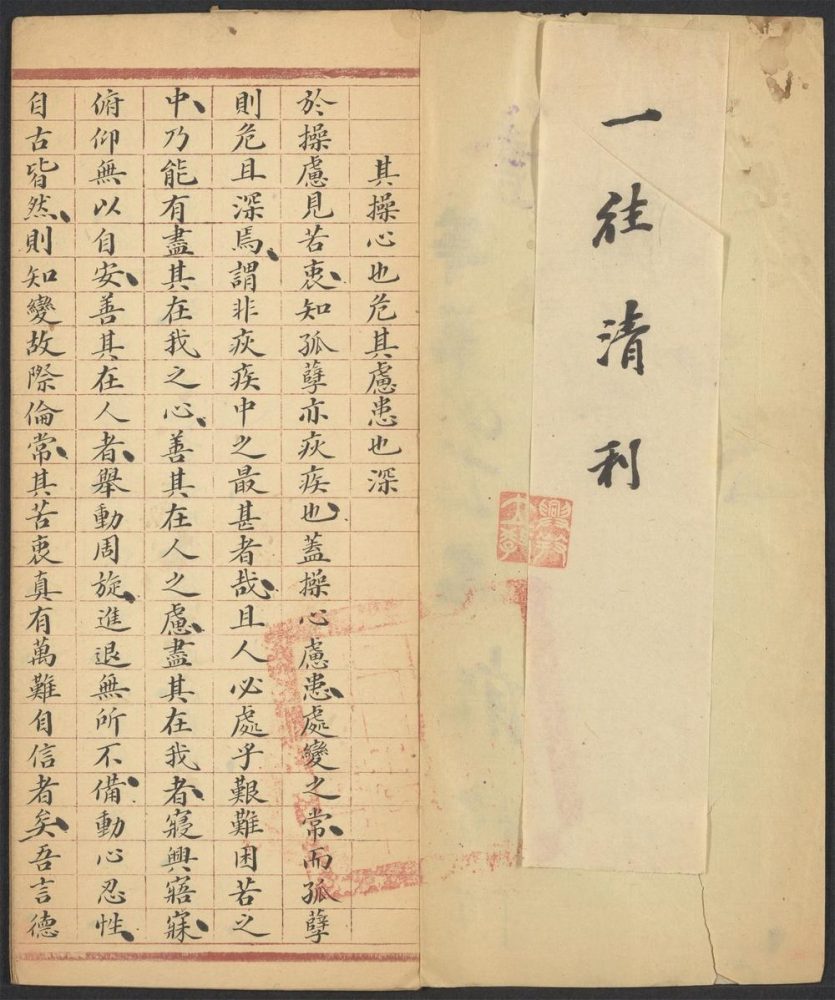 一往清利
其操心也危其慮患也深
於操慮見苦衷、知孤孽亦疢疾也、蓋操心慮患、處變之常、而孤孽
則危且深焉、謂非疢疾中之最甚者哉、且人必處乎艱難困苦之
中、乃能有盡其在我之心、善其在人之慮、盡其在我者、寢興寤寐、
俯仰無以自安、善其在人者、舉動周旋、進退無所不備、動心忍性、
自古皆然、則知變故際倫常、其苦衷真有萬難自信者矣、吾言德